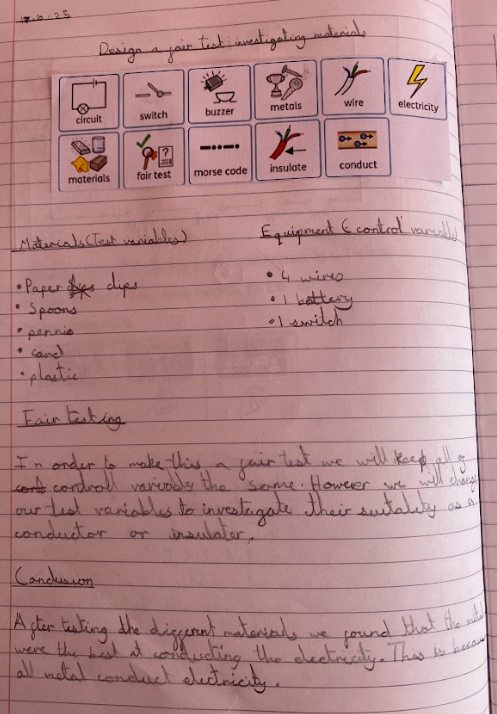 .10.25
Design a fair test investigating materials
circuit switch buzzer metals wire electricity
materials fair test morse code insulate conduct
Materials (Test variables)
Equipment (control variable)
• Paper clips
• Spoons
• pennie
• card
• plastic
• 4 wires
• 1 battery
• 1 switch
Fair testing
In order to make this a fair test we will keep all of
controll variable the same. However we will change
our test variables to investagate their suitality as a
conductor or insulater.
Conclusion
After testing the different materials we found that the
were the best at conducting the electricity. This is
all metal conduct electricity.